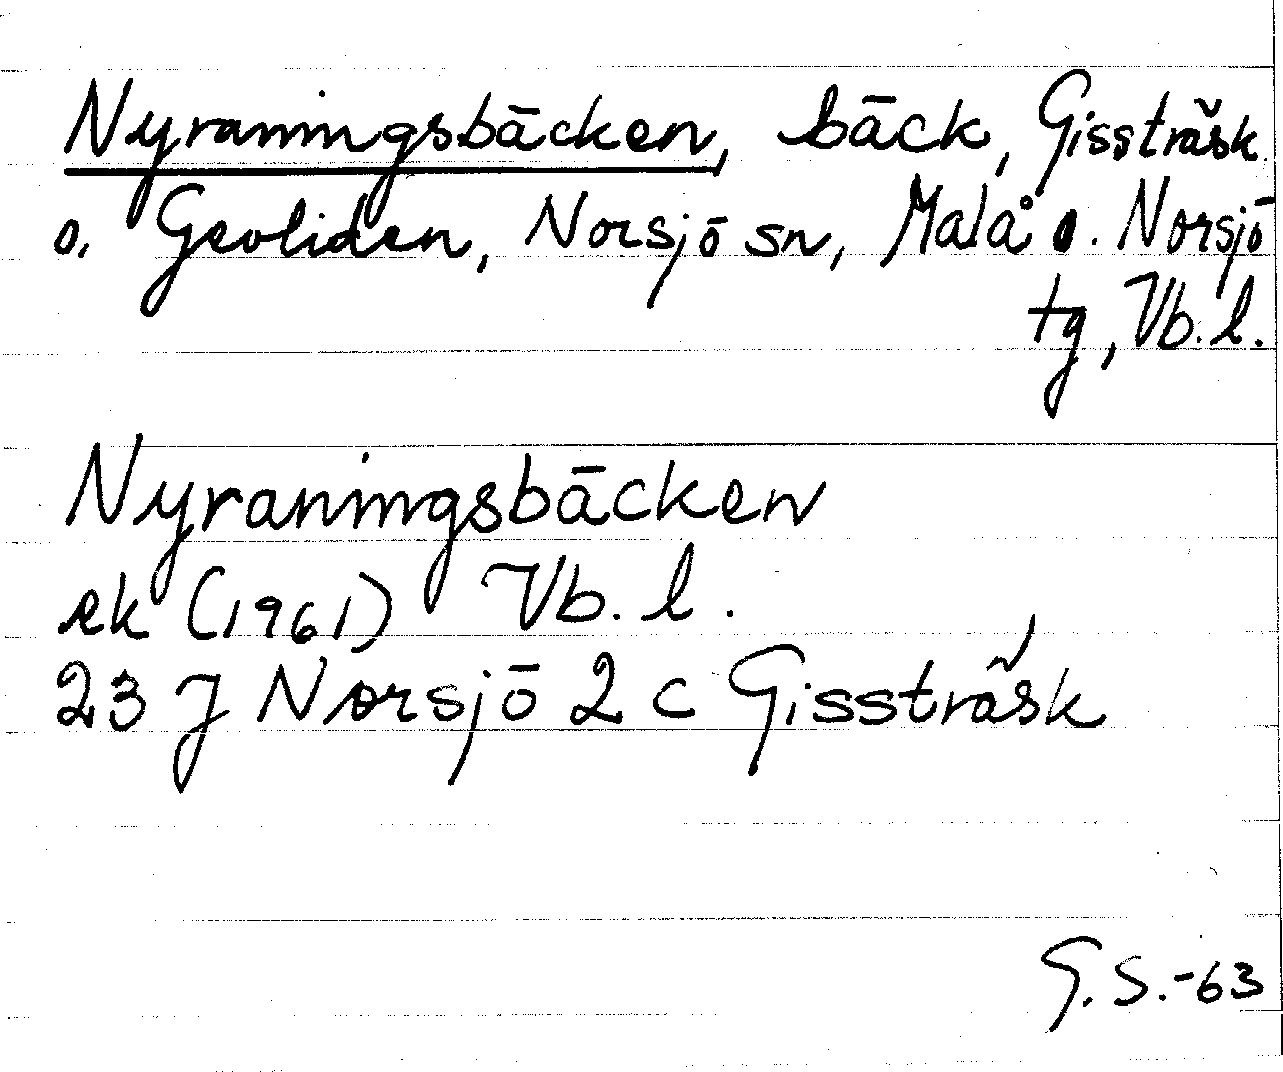 Nyraningsbäcken, bäck, Gissträsk
o. Gevliden, Norsjö sn, Malå o. Norsjö
tg, Vb. l.
Nyraningsbäcken
ek (1961) Vb. l.
23 J Norsjö 2 c Gissträsk
G. S. -63